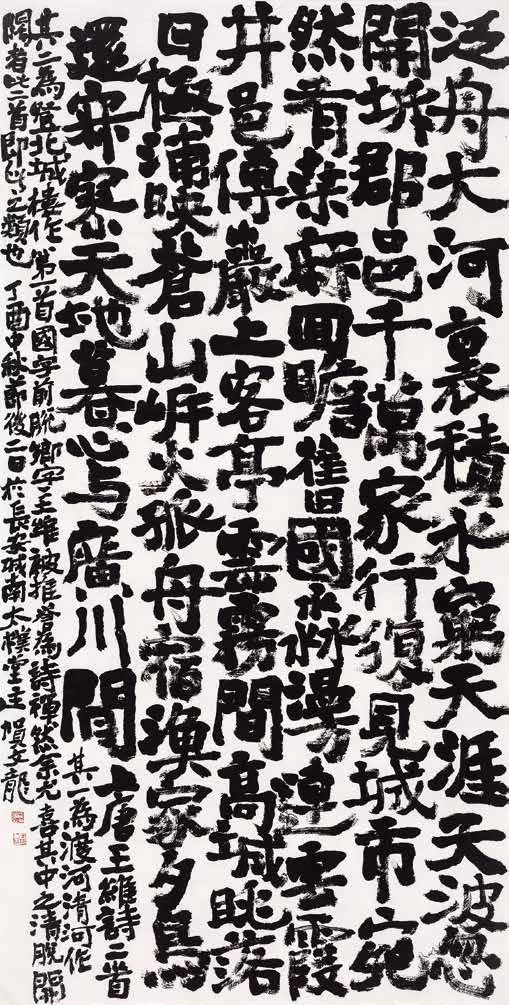 泛舟大河裏積水窮天涯天波忽
開坼郡邑千萬家行復見城市宛
然有桑麻回瞻舊國淼漫連雲霞
井邑傅巖上客亭雲霧間高城眺落
日極浦映蒼山岸火孤舟宿漁家夕鳥
還寂寥天地暮心与廣川間
唐王維詩二首
其一為渡河清河作
其二為登北城樓作第一首國字前脫鄉字王維被推譽為詩禪然余尤喜其中之清脫開
闊者此二首即此之類也丁酉中秋節後二日於長安城南大樸堂主賀文龍